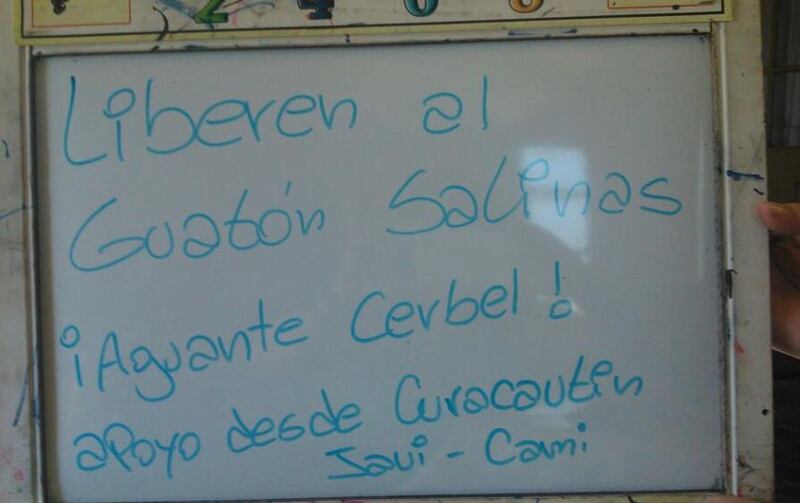 2 4 6 8
Liberen al
Guatón Salinas
¡Aguante Cerbel!
apoyo desde Curacautin
Javi - Cami